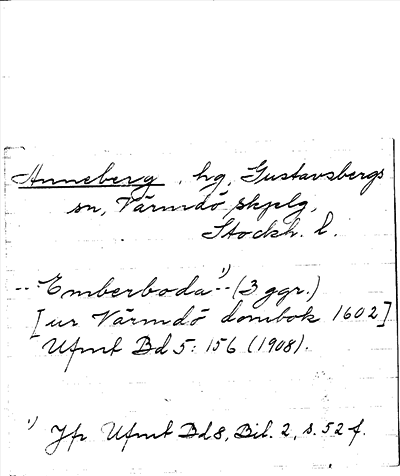 Anneberg, hg, Gustavsbergs
sn, Värmdö skplg,
Stockh. l.
--Emberboda¹⁾-- (3 ggr.)
[ur Värmdö dombok 1602]
Ufmt Bd 5: 156 (1908).
¹⁾ Jfr Ufmt Bd 8, Bil. 2, s. 52 f.